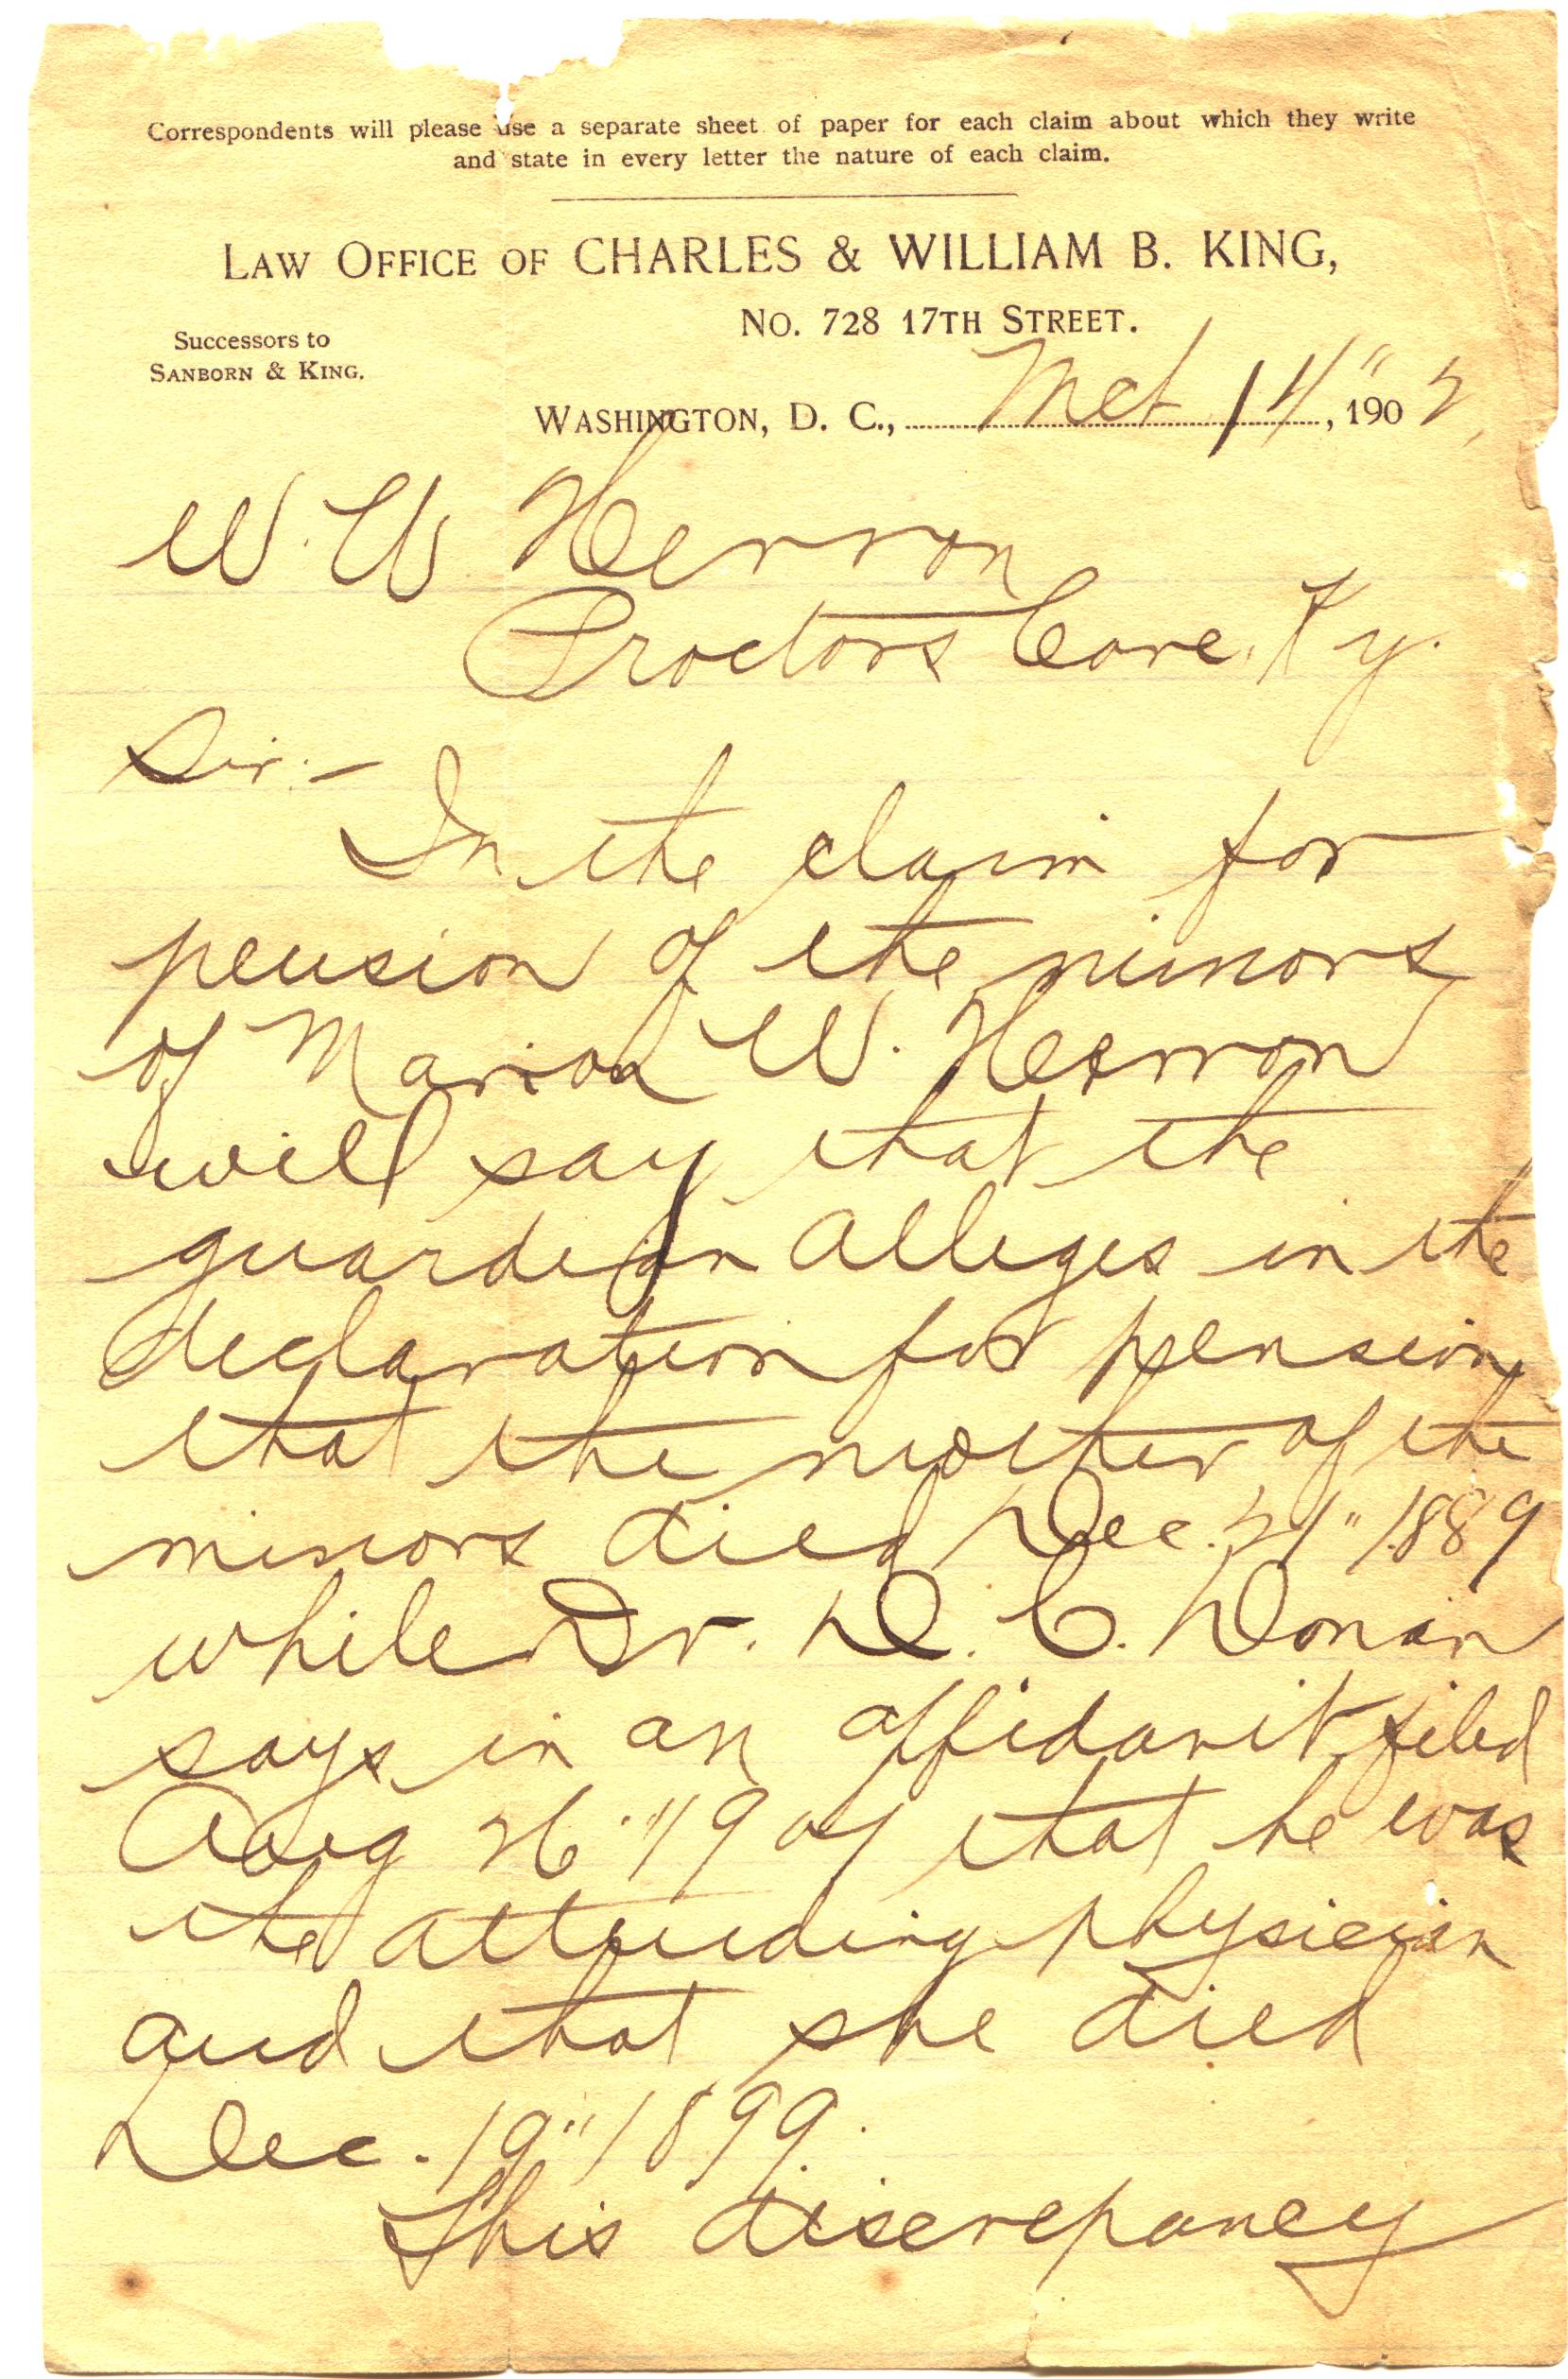 Correspondents will please use a separate sheet of paper for each claim about which they write
and state in every letter the nature of each claim.
LAW OFFICE OF CHARLES & WILLIAM B. KING,
NO. 728 17TH STREET.
Successors to
SANBORN & KING.
WASHINGTON, D. C., Mch 14", 1902
W. W Herron
Proctors Cave. Ky.
Sir:-
In the claim for
pension of the minors
of Marion W. Herron
will say that the
guardian alleges in the
declaration for pension
that the mother of the
minors died Dec. 1889
while Dr. D. C. Donan
says in an affidavit filed
Aug 26" 1901 that he was
the attending physician
and that she died
Dec. 19" 1899.
This discrepancy